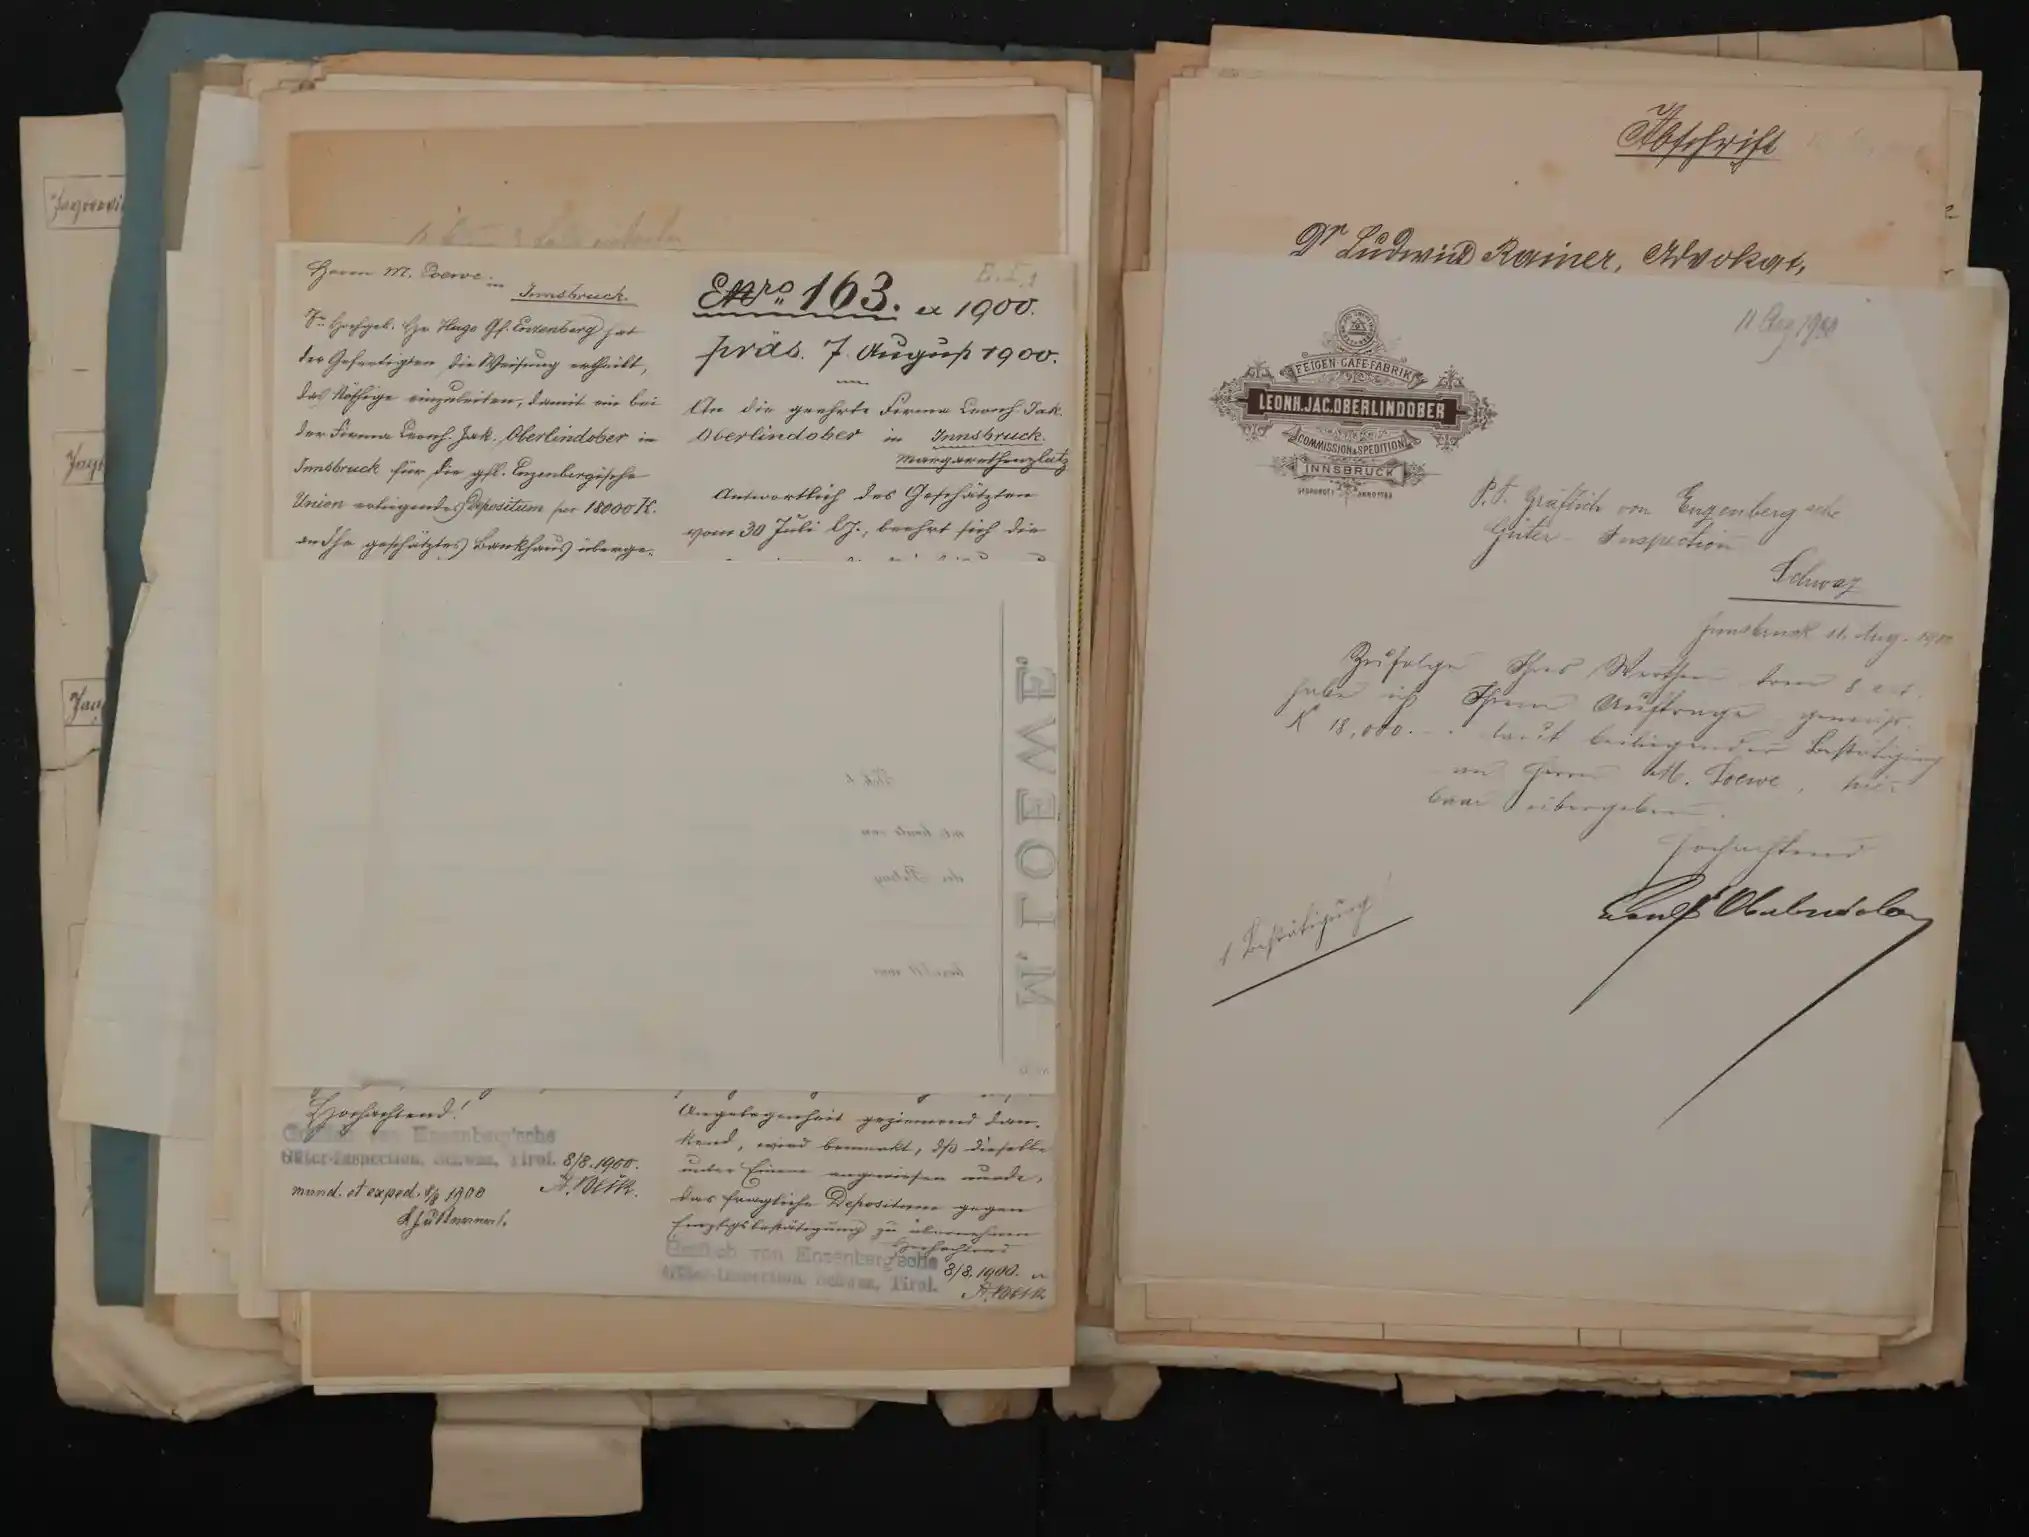 Herrn M. Loewe
in
Innsbruck.
Sr Hochgeb. Hr. Hugo Gf. Enzenberg hat
der Gefertigten die Weisung ertheilt,
das Nöthige einzuleiten, damit ein bei
der Firma Leonh. Jak. Oberlindober in
Innsbruck für die gfl. Enzenbergische
Union erliegendes Depositum per 18000 K.
an Ihr geschätztes Bankhaus überge-
E.Nro 163. ex 1900.
präs. 7. August 1900.
An die geehrte Firma Leonh. Jak.
Oberlindober in Innsbruck.
Margarethenplatz
Antwortlich des Geschätzten
vom 30 Juli l.J., beehrt sich die
M. LOEWE.
Hochachtend!
Gräflich von Enzenberg'sche
Güter-Inspection, Schwaz, Tirol. 8/8. 1900.
mund. et exped. 8/8 1900
Angelegenheit geziemend dan-
kend, wird bemerkt, dß dieselbe
unter Einem angewiesen wurde,
das fragliche Depositum gegen
Empfgsbestätigung zu übernehmen
Hochachtend
Gräflich von Enzenberg'sche
Güter-Inspection, Schwaz, Tirol. 8/8. 1900.
Abschrift
Dr Ludwig Rainer, Advokat,
11 Aug 1900
FEIGEN-CAFE-FABRIK
LEONH. JAC. OBERLINDOBER
COMMISSION & SPEDITION
INNSBRUCK
GEGRÜNDET ANNO 1788
P. T. Gräflich von Enzenberg'sche
Güter-Inspection
Schwaz
Innsbruck 11. Aug. 1900
Zufolge Ihres Werthen vom 8 crt.
habe ich Ihrem Auftrage gemäss
K 18,000.- laut beiliegender Bestätigung
an Herrn M. Loewe, hier
baar übergeben.
Hochachtend
1 Bestätigung